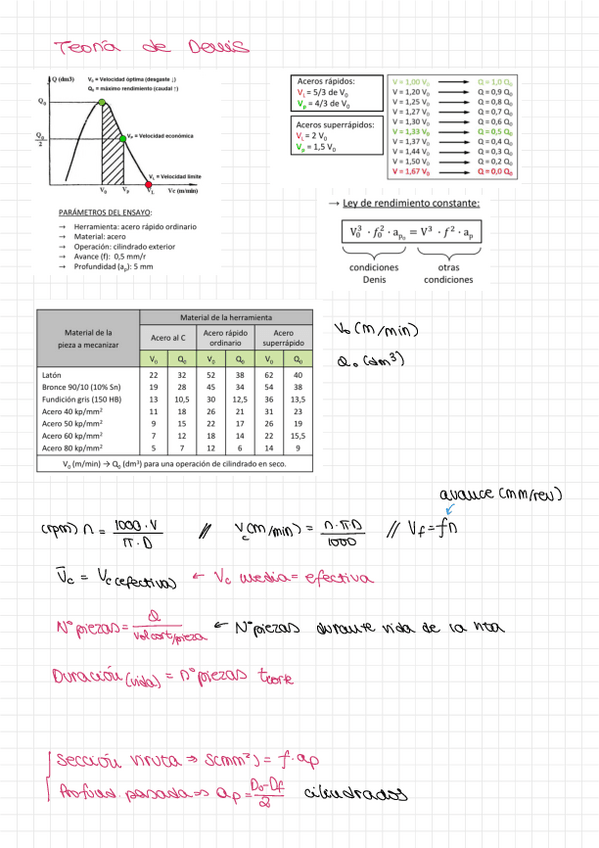 Teoría de Denis
Q (dm3)
V₀ = Velocidad óptima (desgaste ↓)
Q₀ = máximo rendimiento (caudal ↑)
Q₀
Q₀/2
Vₚ = Velocidad económica
V_L = Velocidad límite
V₀ Vₚ V_L Vc (m/min)
PARÁMETROS DEL ENSAYO:
→ Herramienta: acero rápido ordinario
→ Material: acero
→ Operación: cilindrado exterior
→ Avance (f): 0,5 mm/r
→ Profundidad (aₚ): 5 mm
Aceros rápidos:
V_L = 5/3 de V₀
Vₚ = 4/3 de V₀
Aceros superrápidos:
V_L = 2 V₀
Vₚ = 1,5 V₀
V = 1,00 V₀ → Q = 1,0 Q₀
V = 1,20 V₀ → Q = 0,9 Q₀
V = 1,25 V₀ → Q = 0,8 Q₀
V = 1,27 V₀ → Q = 0,7 Q₀
V = 1,30 V₀ → Q = 0,6 Q₀
V = 1,33 V₀ → Q = 0,5 Q₀
V = 1,37 V₀ → Q = 0,4 Q₀
V = 1,44 V₀ → Q = 0,3 Q₀
V = 1,50 V₀ → Q = 0,2 Q₀
V = 1,67 V₀ → Q = 0,0 Q₀
→ Ley de rendimiento constante:
V₀³ · f₀² · aₚ₀ = V³ · f² · aₚ
condiciones Denis
otras condiciones
Material de la pieza a mecanizar
Material de la herramienta
Acero al C
Acero rápido ordinario
Acero superrápido
V₀ Q₀ V₀ Q₀ V₀ Q₀
Latón 22 32 52 38 62 40
Bronce 90/10 (10% Sn) 19 28 45 34 54 38
Fundición gris (150 HB) 13 10,5 30 12,5 36 13,5
Acero 40 kp/mm² 11 18 26 21 31 23
Acero 50 kp/mm² 9 15 22 17 26 19
Acero 60 kp/mm² 7 12 18 14 22 15,5
Acero 80 kp/mm² 5 7 12 6 14 9
V₀ (m/min) → Q₀ (dm³) para una operación de cilindrado en seco.
V₀ (m/min)
Q₀ (dm³)
avance (mm/rev)
(rpm) n = 1000·V/π·D // Vc (m/min) = n·πD/1000 // Vf = fn
V̄c = Vc (efectiva) ← Vc media = efectiva
Nº piezas = Q/vol cort/pieza ← Nº piezas durante vida de la hta
Duración (vida) = nº piezas tcorte
Sección viruta ⇒ S(mm²) = f·ap
Profund. pasada ⇒ ap = D₀-Df/2 cilindrados